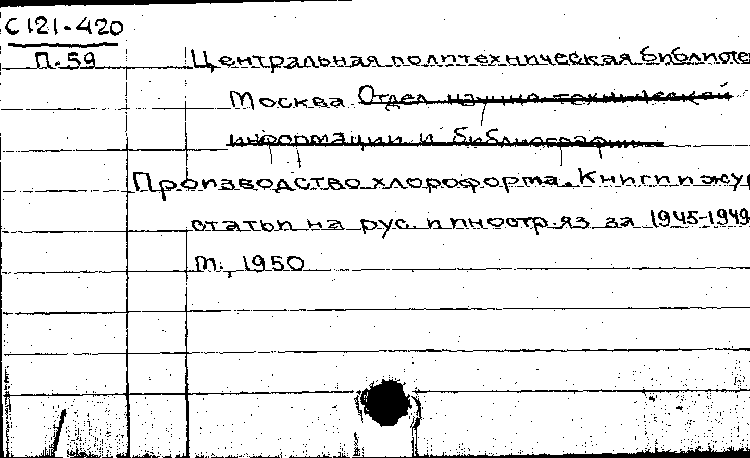 С121-420
П.59
Центральная политехническая библиоте
Москва Отдел научно-технической
информации и библиографии
Производство хлороформа. Книги и жур
статьи на рус. и иностр. яз за 1945-1949
М., 1950